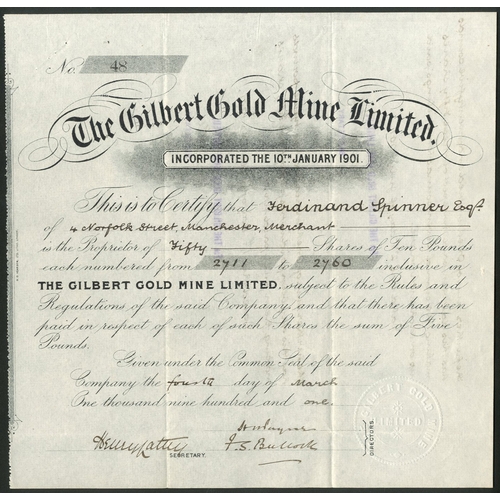 No. 48
The Gilbert Gold Mine Limited.
INCORPORATED THE 10TH JANUARY 1901.
This is to Certify that Ferdinand Spinner Esqr.
of 4 Norfolk Street, Manchester, Merchant
is the Proprietor of Fifty Shares of Ten Pounds
each numbered from 2711 to 2760 inclusive in
THE GILBERT GOLD MINE LIMITED, subject to the Rules and
Regulations of the said Company, and that there has been
paid in respect of each of such Shares the sum of Five
Pounds.
Given under the Common Seal of the said
Company the fourth day of March
One thousand nine hundred and one.
F. S. Bullock
SECRETARY.
DIRECTORS.
GILBERT GOLD MINE
LIMITED